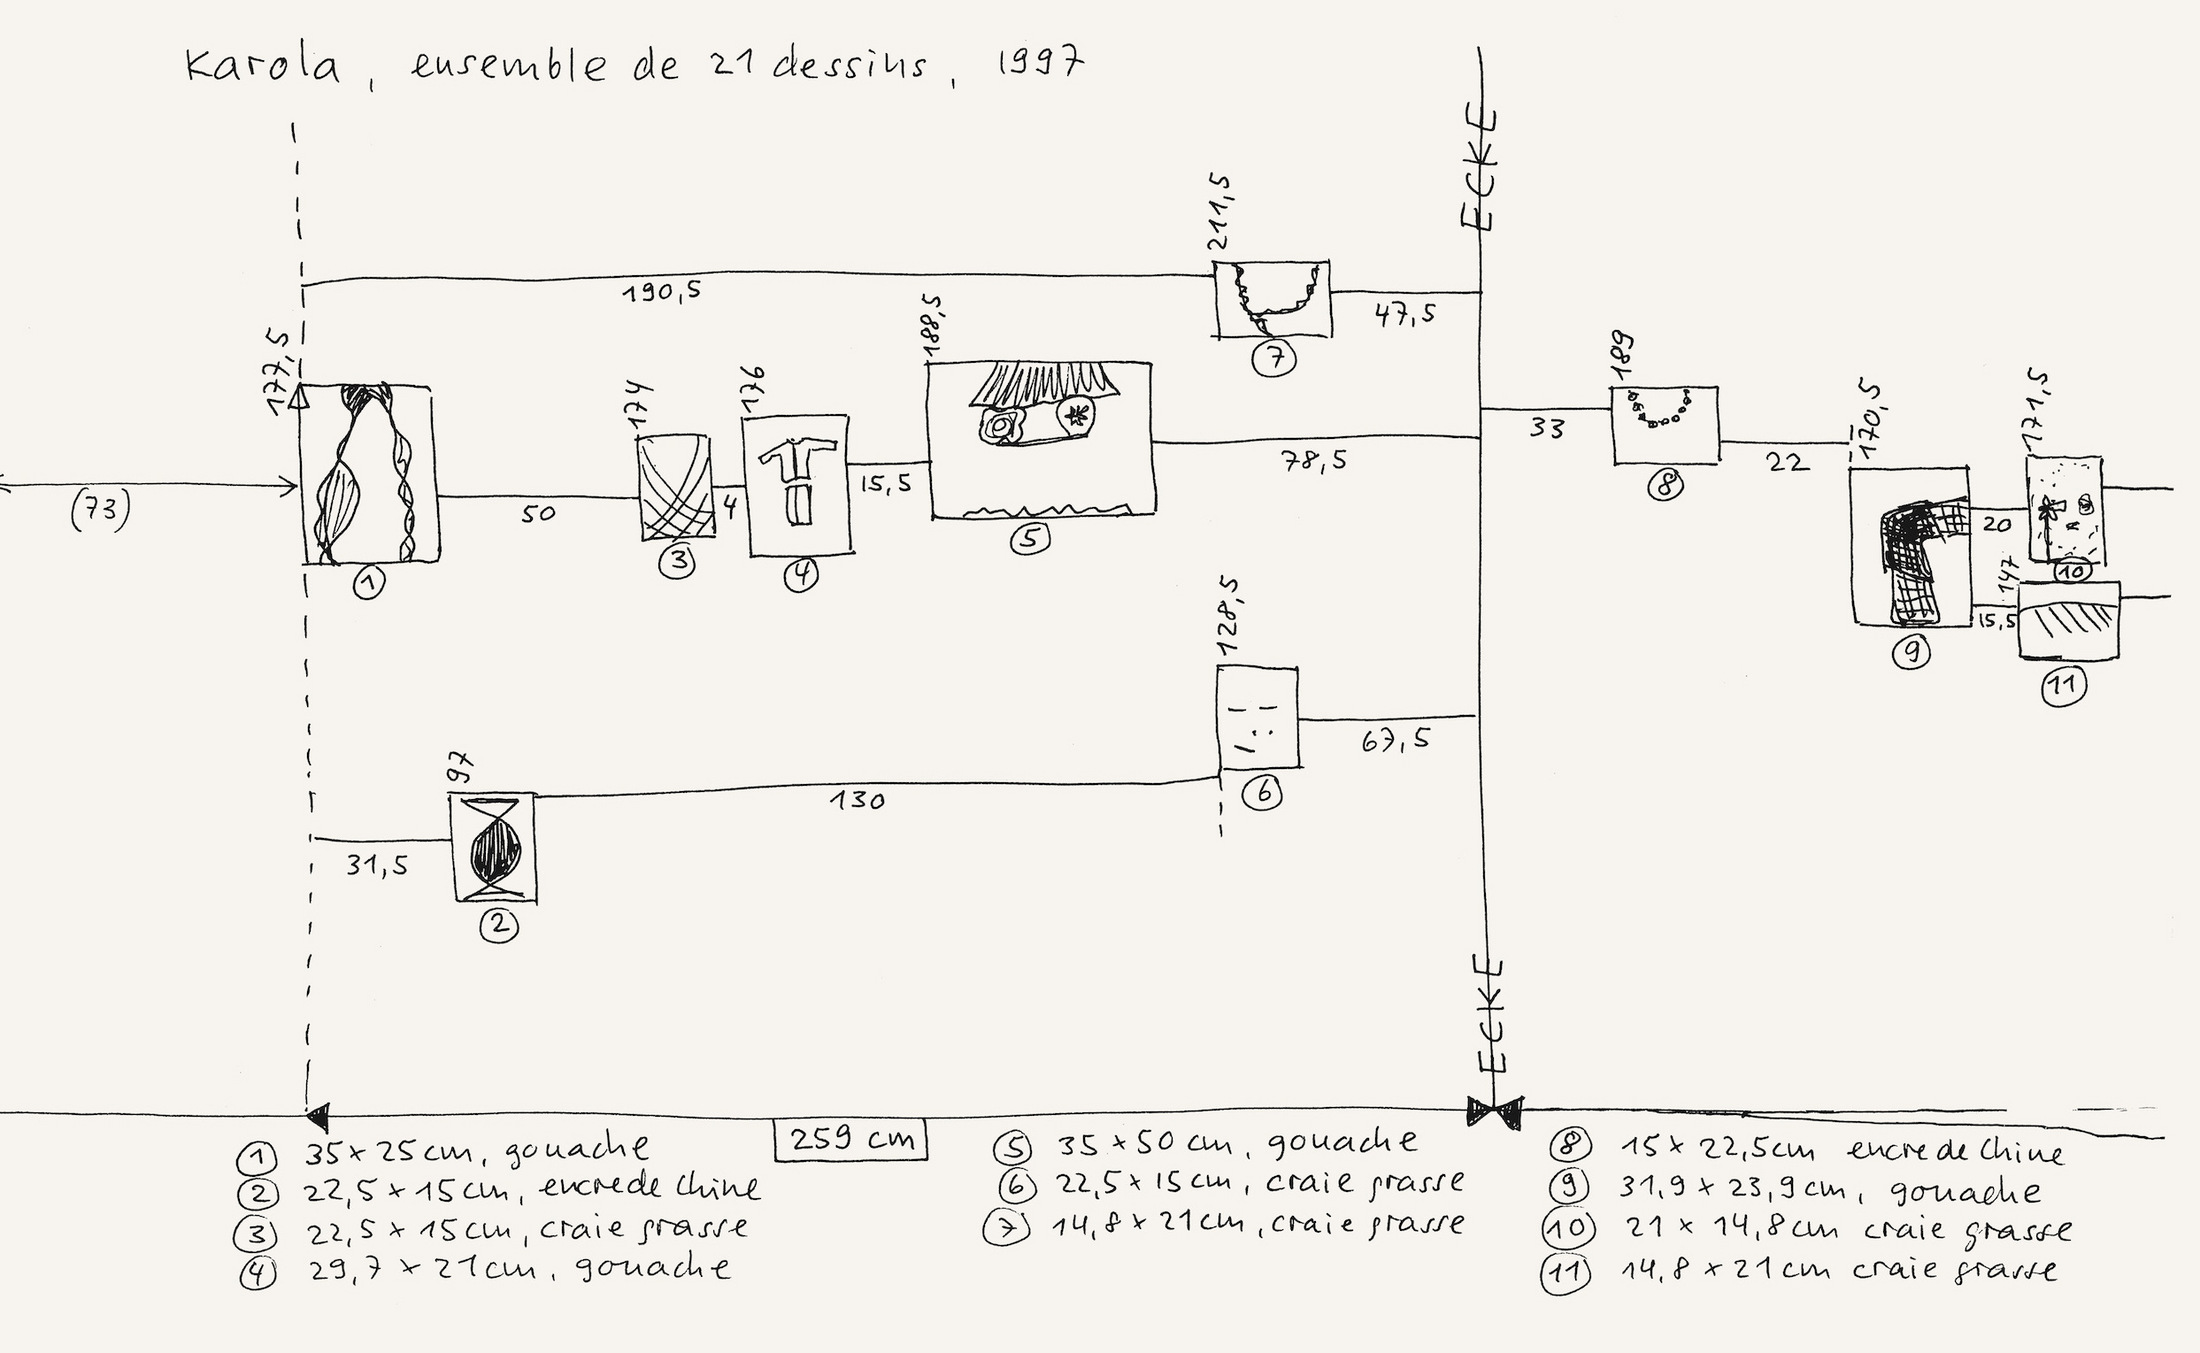 Karola, ensemble de 21 dessins, 1997
ECKE
211,5
190,5
47,5
177,5
188,5
189
174
176
170,5
171,5
33
22
78,5
(73)
50
4
15,5
20
147
15,5
1
3
4
5
7
8
9
10
11
128,5
67,5
6
97
130
31,5
2
ECKE
259 cm
1 35 x 25 cm, gouache
2 22,5 x 15 cm, encre de Chine
3 22,5 x 15 cm, craie grasse
4 29,7 x 21 cm, gouache
5 35 x 50 cm, gouache
6 22,5 x 15 cm, craie grasse
7 14,8 x 21 cm, craie grasse
8 15 x 22,5 cm encre de Chine
9 31,9 x 23,9 cm, gouache
10 21 x 14,8 cm craie grasse
11 14,8 x 21 cm craie grasse